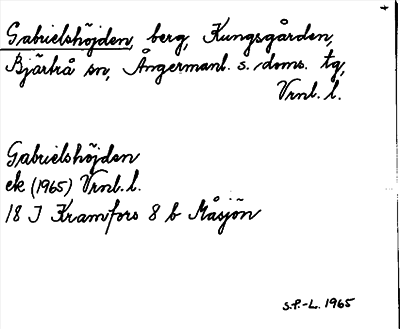 Gabrielshöjden, berg, Kungsgården,
Bjärtrå sn, Ångermanl. s. doms. tg,
Vrnl. l.
Gabrielshöjden
ek (1965) Vrnl. l.
18 J Kramfors 8 b Måsjön
S.P.-L. 1965